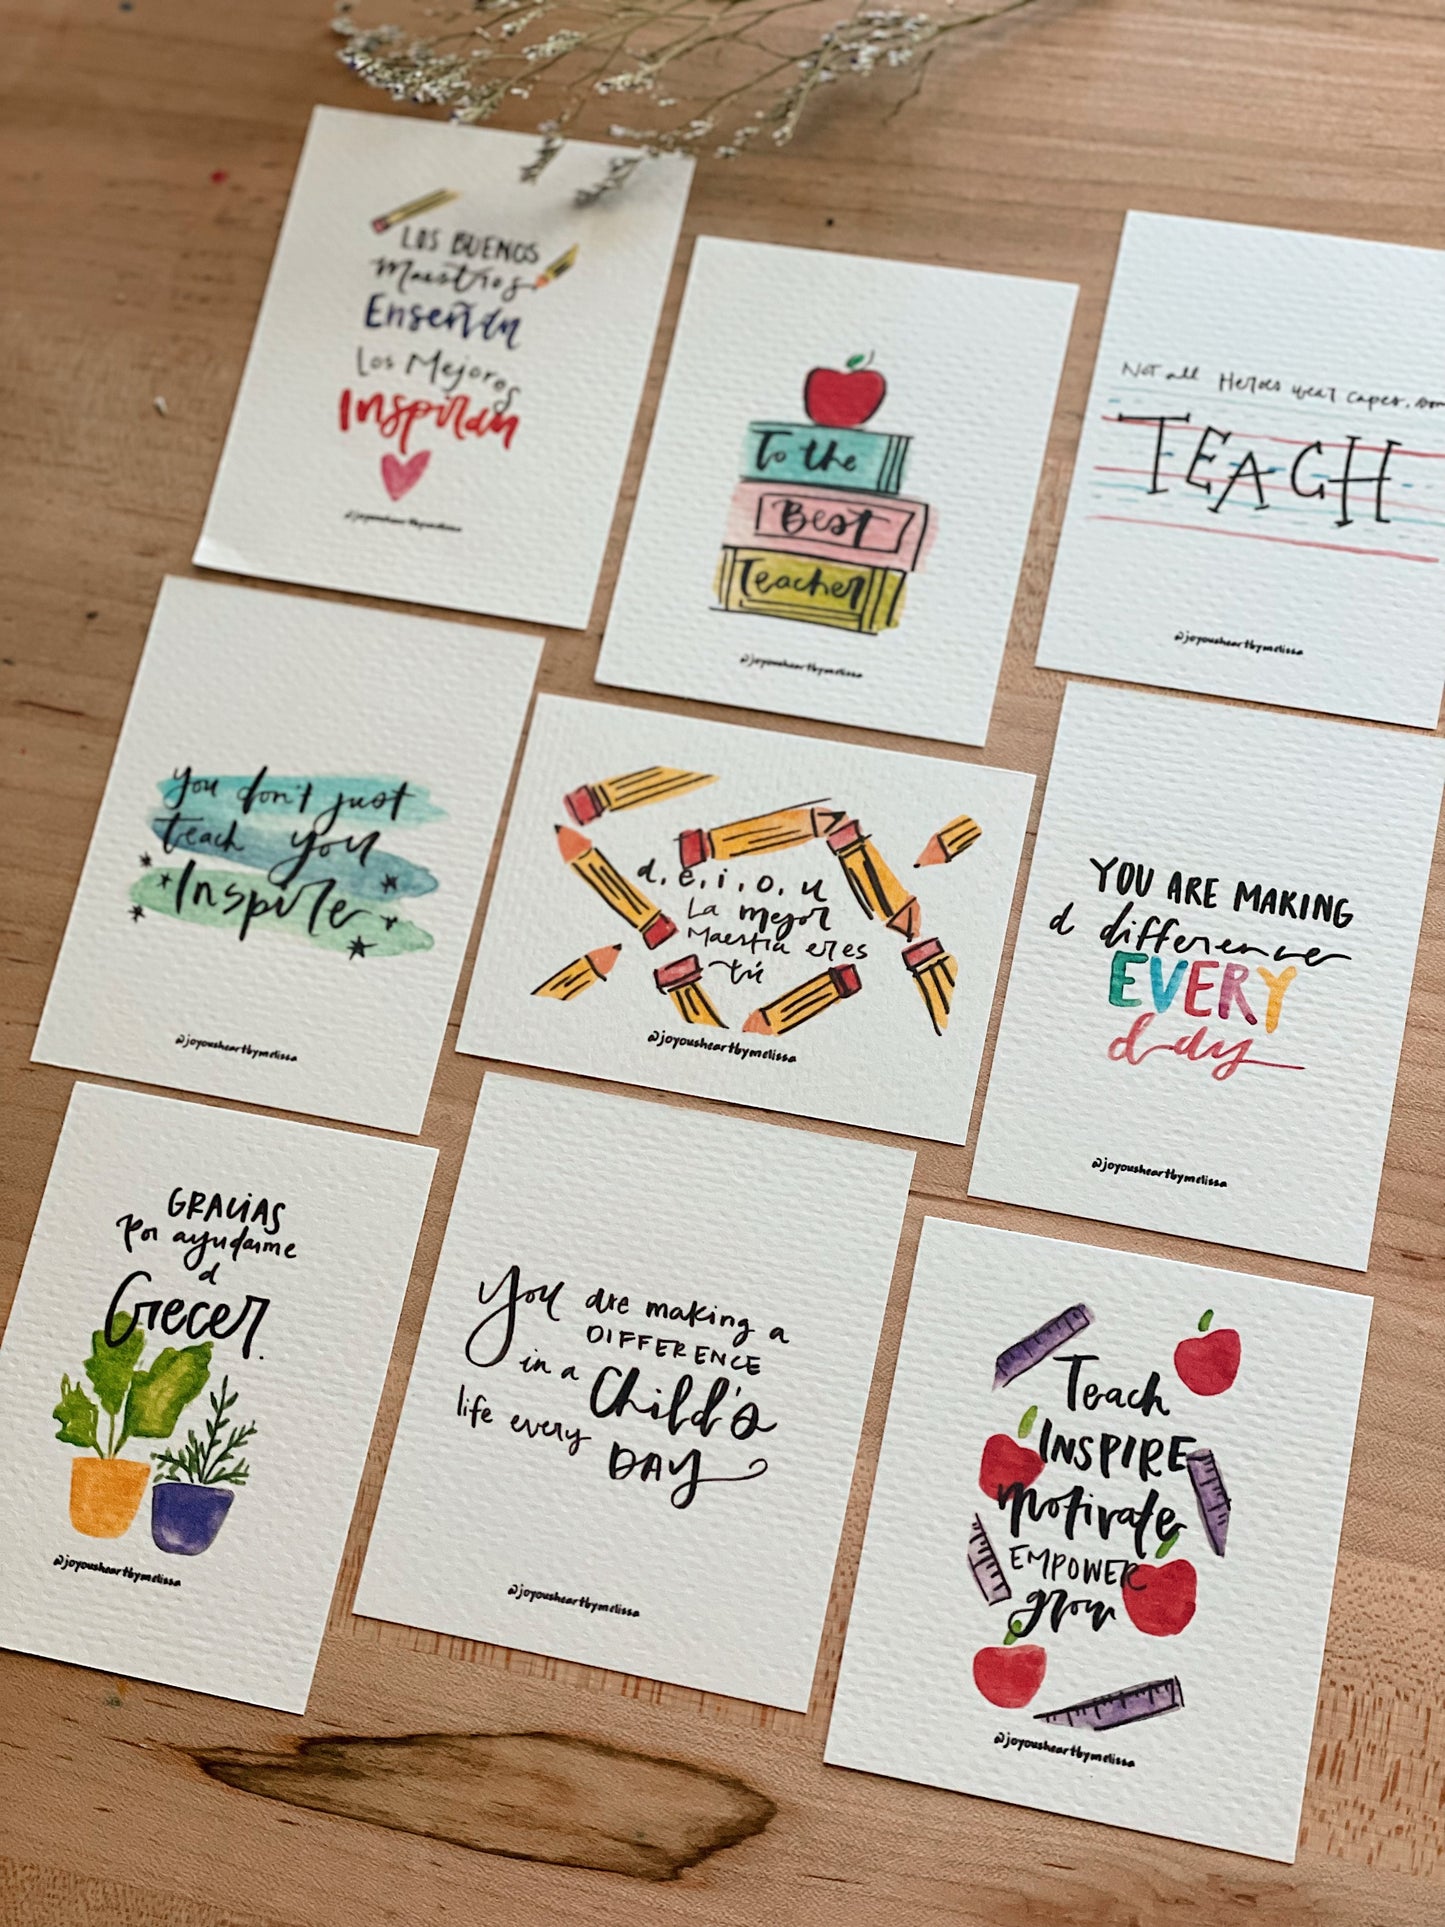 LOS BUENOS
Maestros
Enseñan
Los Mejores
Inspiran
@joyousheartbymelissa
To the
Best
Teacher
@joyousheartbymelissa
Not all Heroes wear capes, som
TEACH
@joyousheartbymelissa
you don't just
teach you
Inspire
@joyousheartbymelissa
a, e, i, o, u
La mejor
Maestra eres
tú
@joyousheartbymelissa
YOU ARE MAKING
a difference
EVERY
day
@joyousheartbymelissa
GRACIAS
Por ayudarme
a
Crecer.
@joyousheartbymelissa
You are making a
DIFFERENCE
in a Child's
life every
DAY
@joyousheartbymelissa
Teach
INSPIRE
Motivate
EMPOWER
grow
@joyousheartbymelissa